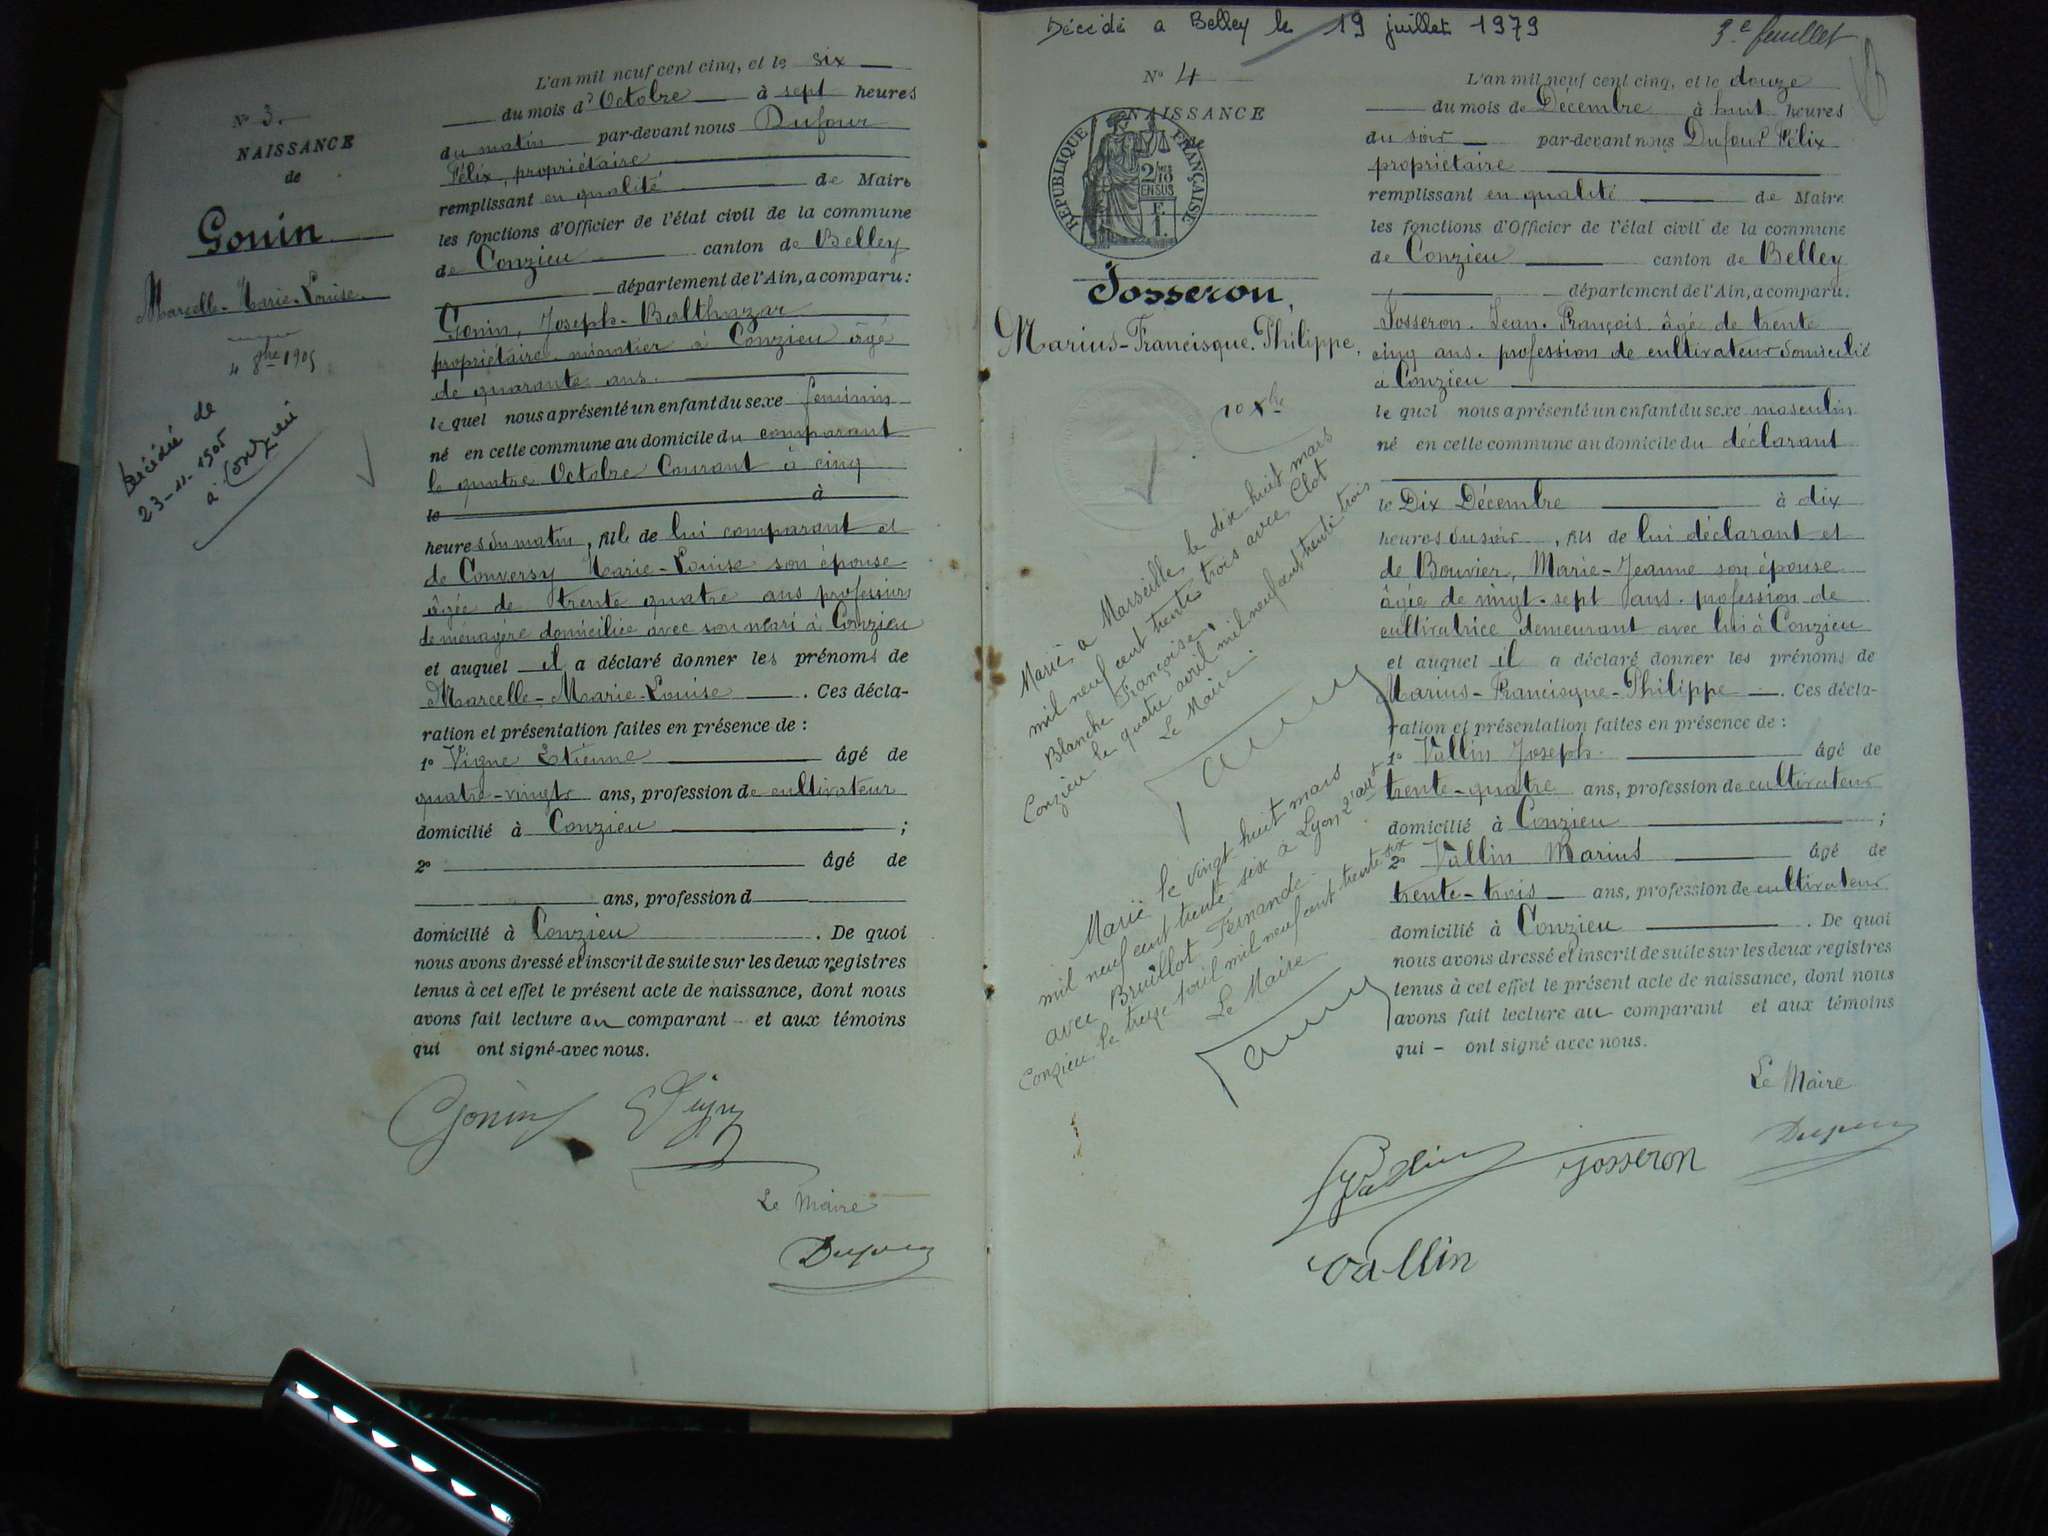 N° 3.
NAISSANCE
de
Gonin
Marcelle-Marie-Louise
4 8bre 1905
Décédée de
23-11-1905
à Conzieu
L'an mil neuf cent cinq, et le six
du mois d'Octobre à sept heures
du matin par-devant nous Dufour
Félix, propriétaire
remplissant en qualité de Maire
les fonctions d'Officier de l'état civil de la commune
de Conzieu canton de Belley
département de l'Ain, a comparu:
Gonin, Joseph-Balthazar
propriétaire minotier à Conzieu âgé
de quarante ans.
le quel nous a présenté un enfant du sexe féminin
né en cette commune au domicile du comparant
le quatre Octobre Courant à cinq
le à
heures du matin, fille de lui comparant et
de Conversy Marie-Louise son épouse
âgée de trente quatre ans profession
de ménagère domiciliée avec son mari à Conzieu
et auquel il a déclaré donner les prénoms de
Marcelle-Marie-Louise. Ces décla-
ration et présentation faites en présence de :
1° Vigne Etienne âgé de
quatre-vingts ans, profession de cultivateur
domicilié à Conzieu ;
2° âgé de
ans, profession d
domicilié à Conzieu. De quoi
nous avons dressé et inscrit de suite sur les deux registres
tenus à cet effet le présent acte de naissance, dont nous
avons fait lecture au comparant et aux témoins
qui ont signé avec nous.
Gonin
Le Maire
Décédé a Belley le 19 juillet 1979
3e feuillet
N° 4
NAISSANCE
de
RÉPUBLIQUE FRANÇAISE
Josseron,
Marius-Francisque-Philippe,
10 Xbre
Marié à Marseille le dix huit mars
mil neuf cent trente trois avec Clot
Blanche Françoise.
Conzieu le quatre avril mil neuf cent trente trois
Le Maire.
Marié le vingt huit mars
mil neuf cent trente six à Lyon 2e arrt
avec Bruillot Fernande
Conzieu le treize avril mil neuf cent trente six
Le Maire
L'an mil neuf cent cinq, et le douze
du mois de Décembre à huit heures
du soir par-devant nous Dufour Félix
propriétaire
remplissant en qualité de Maire
les fonctions d'Officier de l'état civil de la commune
de Conzieu canton de Belley
département de l'Ain, a comparu.
Josseron Jean-François âgé de trente
cinq ans. profession de cultivateur domicilié
à Conzieu
le quel nous a présenté un enfant du sexe masculin
né en cette commune au domicile du déclarant
le Dix Décembre à dix
heures du soir, fils de lui déclarant et
de Bouvier, Marie-Jeanne son épouse
âgée de vingt-sept ans. profession de
cultivatrice demeurant avec lui à Conzieu
et auquel il a déclaré donner les prénoms de
Marius-Francisque-Philippe. Ces décla-
ration et présentation faites en présence de :
1° Vallin Joseph âgé de
trente-quatre ans, profession de cultivateur
domicilié à Conzieu ;
2° Vallin Marius âgé de
trente-trois ans, profession de cultivateur
domicilié à Conzieu. De quoi
nous avons dressé et inscrit de suite sur les deux registres
tenus à cet effet le présent acte de naissance, dont nous
avons fait lecture au comparant et aux témoins
qui - ont signé avec nous.
Le Maire
Josseron
Vallin